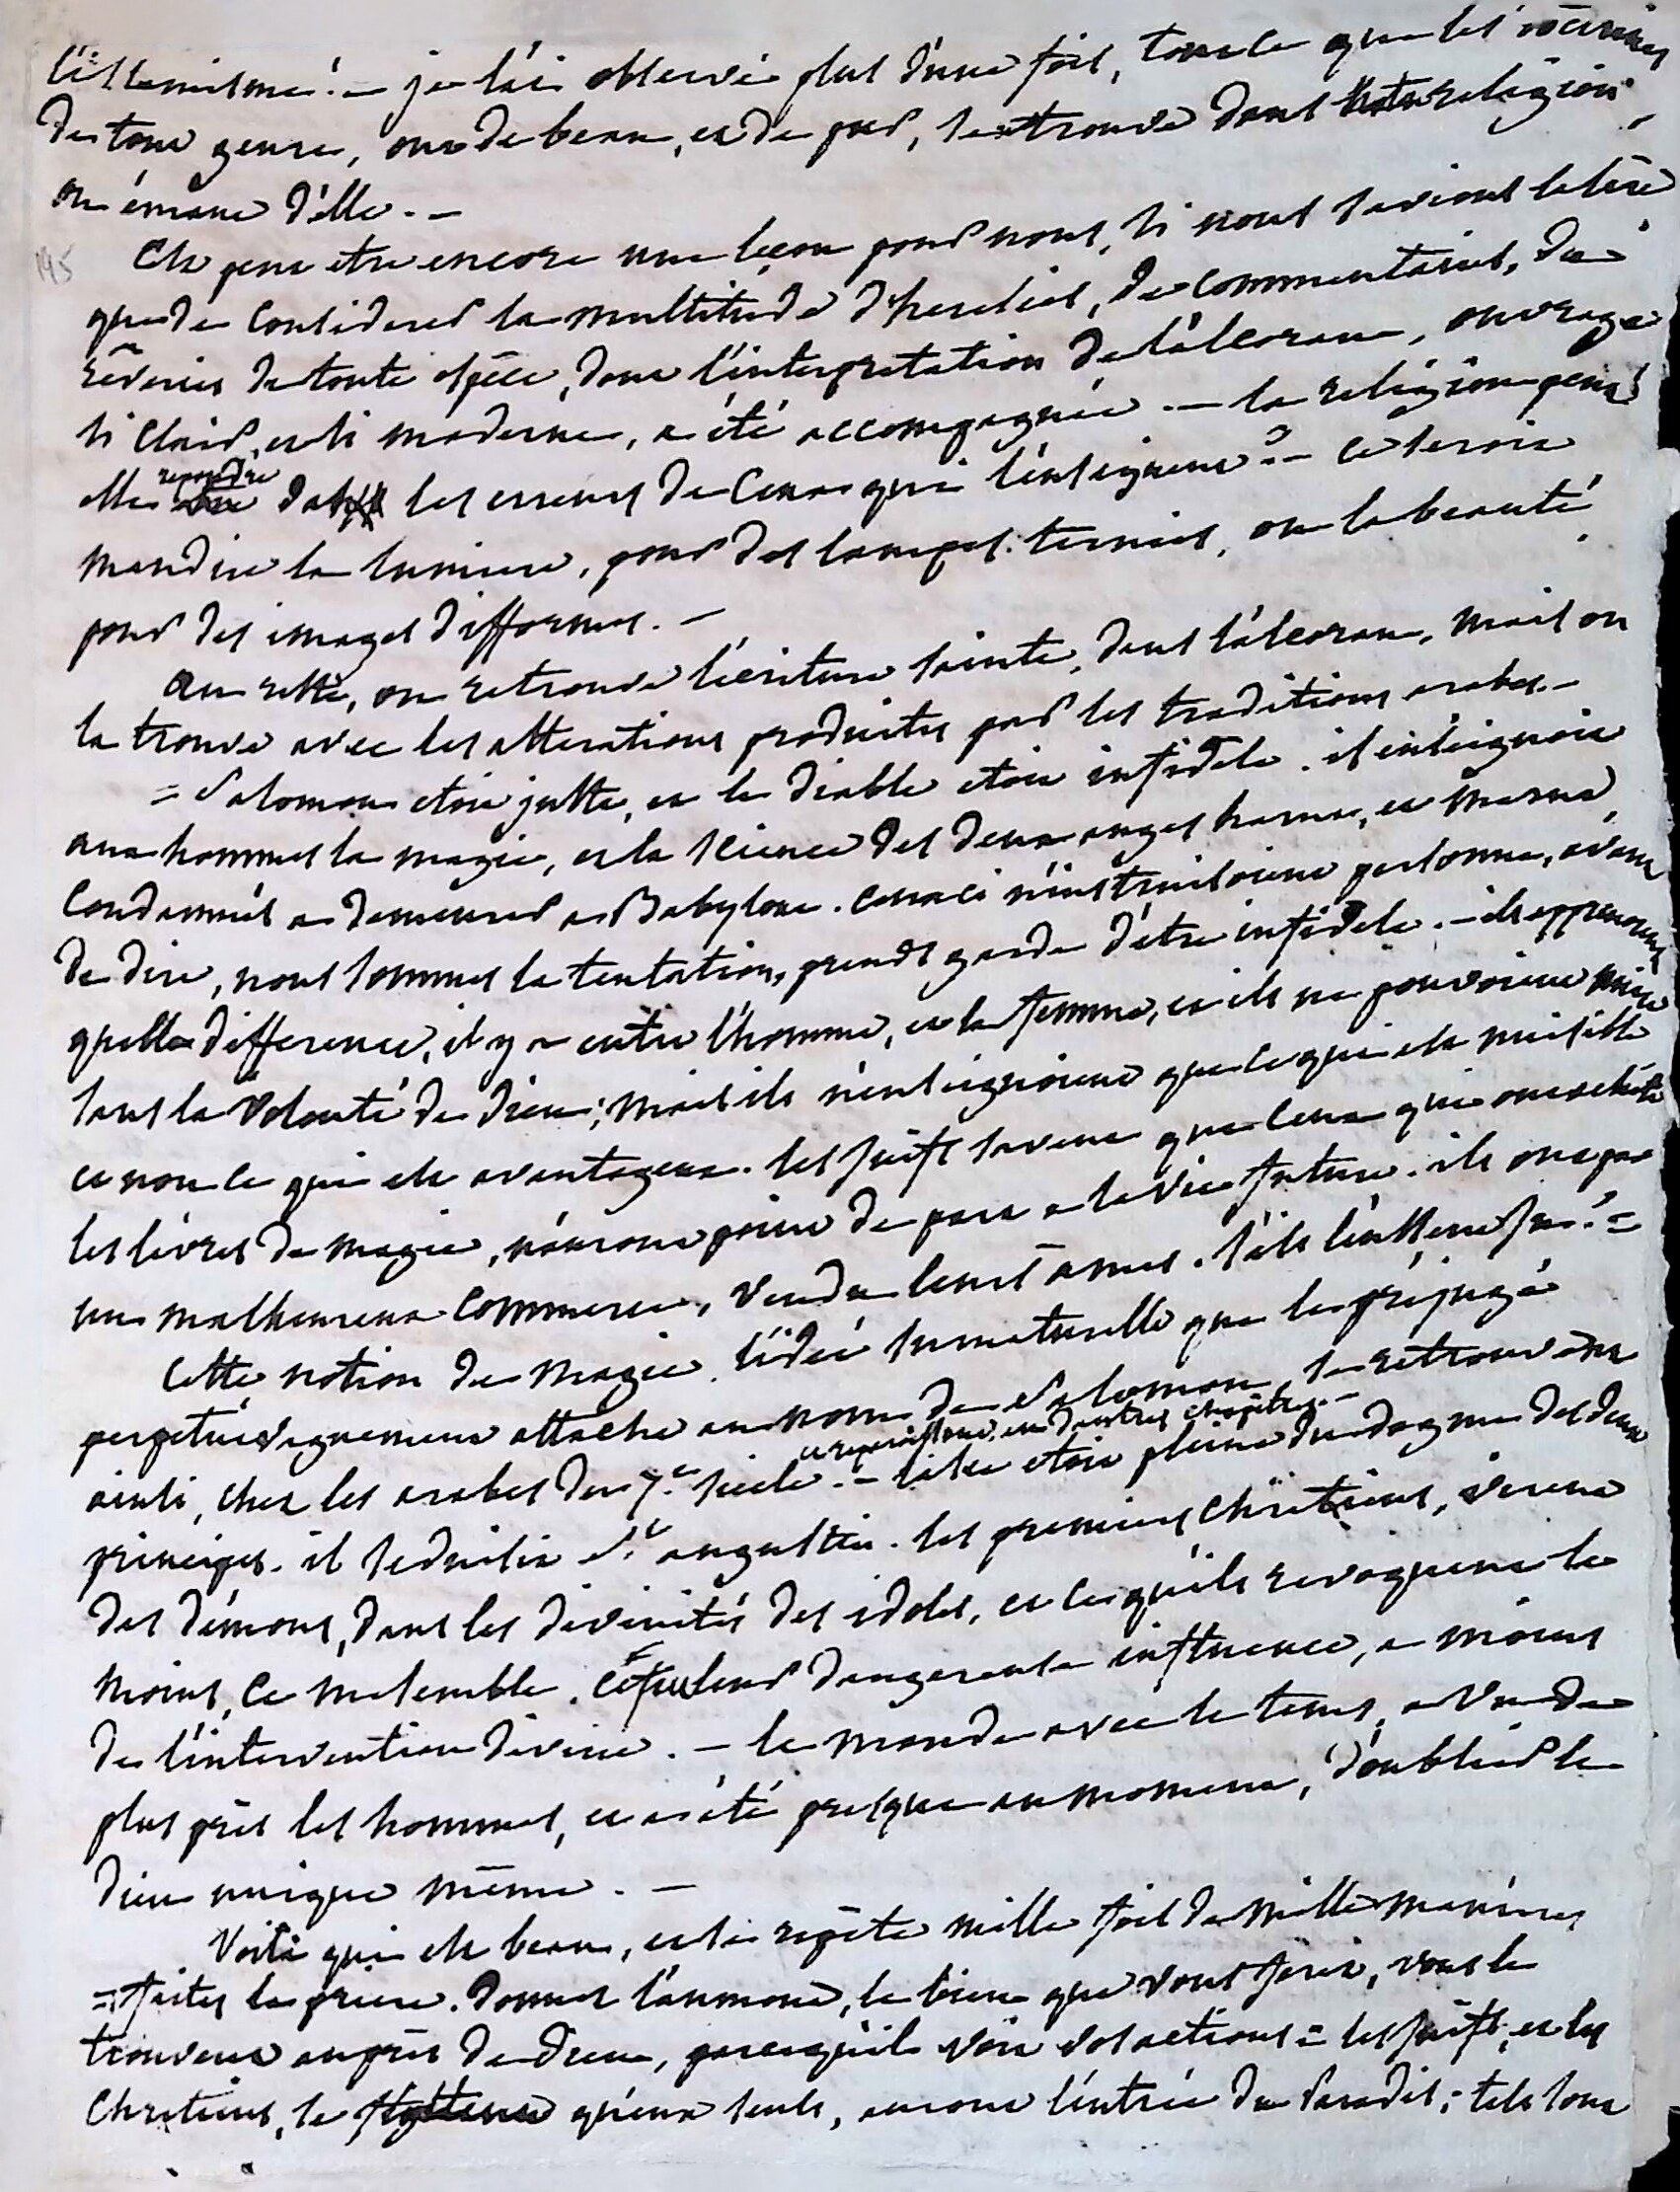 l'islamisme. - je l'ai observé plus d'une fois, tout ce que les
de tout genre, ont de beau, et de pur, se trouve dans notre religion,
ou émane d'elle. -
145
Ce peut etre encore une leçon pour nous, si nous savions le lire
que de considerer la multitude d'heresies, de commentaires, de
rêveries de toute espèce, dont l'interpretation de l'alcoran, ouvrage
si clair, et si moderne, a été accompagnée. - la religion peut
elle repondre des les erreurs de ceux qui l'enseignent ? - ce seroit
maudire la lumiere, pour des lampes ternies, ou la beauté
pour des images difformes. -
Au reste, on retrouve l'ecriture sainte, dans l'alcoran, mais on
la trouve avec les alterations produites par les traditions arabes. -
= Salomon etoit juste, et le diable etoit infidele. il enseignoit
aux hommes la magie, et la science des deux anges harut, et marut,
condamnés a demeurer a Babylone. ceux ci n'instruisoient personne, avant
de dire, nous sommes la tentation, prends garde d'être infidele. - ils apprenoient
quelle difference, il y a entre l'homme, et la femme, et ils ne pouvoient nuire
sans la volonté de dieu; mais ils n'enseignoient que ce qui est nuisible
et non ce qui est avantageux. les juifs savent que ceux qui ont acheté
les livres de magie, n'auront point de part a la vie future. ils ont par
un malheureux commerce, vendu leurs ames. s'ils l'eussent su! =
Cette notion de magie, l'idée surnaturelle que le préjugé
perpetué vaguement attache au nom de Salomon, se retrouvent
ainsi, chez les arabes du 7e siècle. - l'asie etoit pleine du dogme des deux
et reparoissent, en d'autres chapitres. -
principes. il seduisit St augustin. les premiers chrêtiens, virent
des démons, dans les divinités des idoles, et ce qu'ils revoquent le
moins, ce me semble, c'est leur dangereuse influence, a moins
de l'intervention divine. - le monde avec le tems, a vu de
plus près les hommes, et a été presque au moment, d'oublier le
dieu unique même. -
Voila qui est beau, et se repète mille fois de mille manieres
= faites la priere. donnez l'aumone, le bien que vous ferez, vous le
trouverez auprès de dieu, parcequ'il voit vos actions = les juifs, et les
Chretiens, se flattent qu'eux seuls, auront l'entrée du Paradis; tels sont